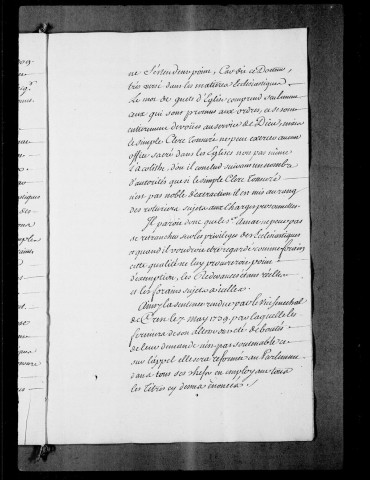 ne s'étendent point, Car dit ce Docteur
très versé dans les matières Ecclesiastiques
Le mot de gens d'Eglise comprend seulement
ceux qui sont promus aux ordres, et se sont
entierement devoüés au service de Dieu, mais
le simple Clerc tonsuré ne peut exercer aucun
office sacré dans les Eglises non pas même
d'acolithe, d'où il conclud suivant un nombre
d'autorités que si le simple Clerc tonsuré
n'est pas noble d'extraction il est mis au rang
des roturiers sujets aux Charges personnelles.
Il paroit donc que le Sr. ne peut pas
se retrancher sur les privileges des Ecclesiastiques
et quand il voudroit être regardé comme forain
cette qualité ne luy procureroit point
d'exemption, les Redevances étant réelles
et les forains sujets à icelles
Ainsy la sentence rendue par le Vice senechal
de le 7. may 1739. par laquelle les
fermiers de son altesse ont été deboutés
de leur demande n'est pas soutenable et
sur l'appel elle sera reformée au Parlement
dans tous ses chefs en employant tous
les titres cy dessus énoncés ./.